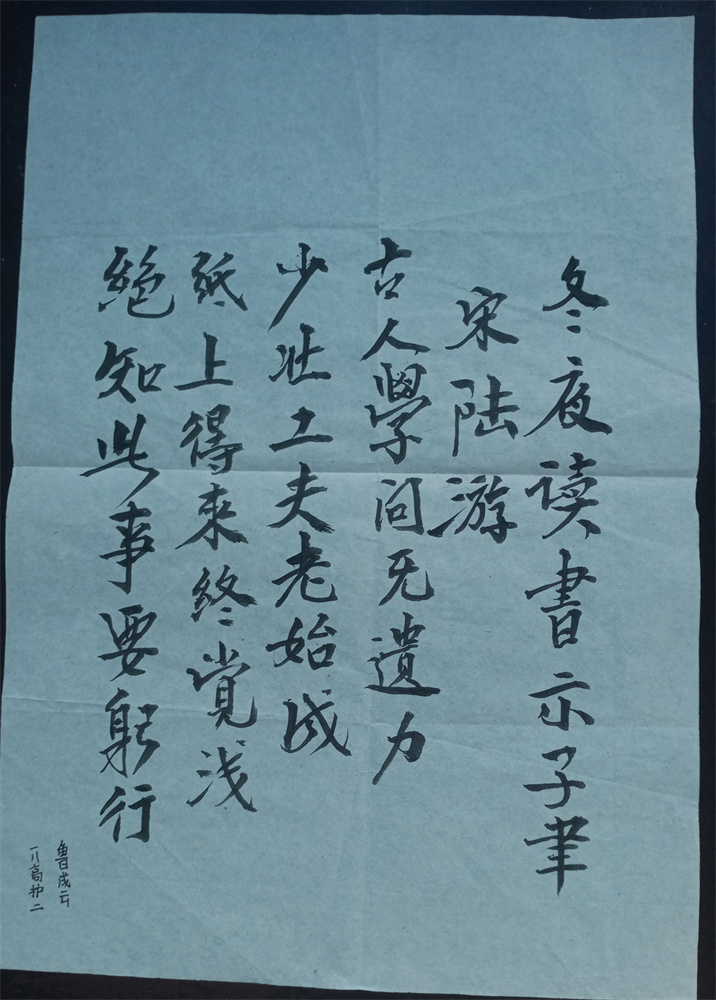 冬夜读書示子聿
宋陆游
古人學问无遺力
少壮工夫老始成
纸上得来终觉浅
絕知此事要躬行
魯成云
一八高护二